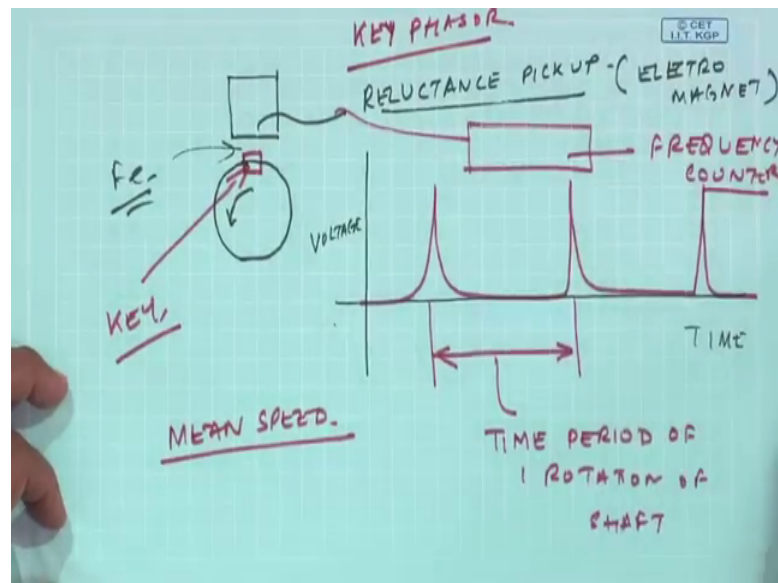 © CET
I.I.T. KGP
KEY PHASOR.
RELUCTANCE PICKUP - (ELECTRO
MAGNET)
FREQUENCY
COUNTER
Fe.
VOLTAGE
KEY.
TIME
MEAN SPEED.
TIME PERIOD OF
1 ROTATION OF
SHAFT